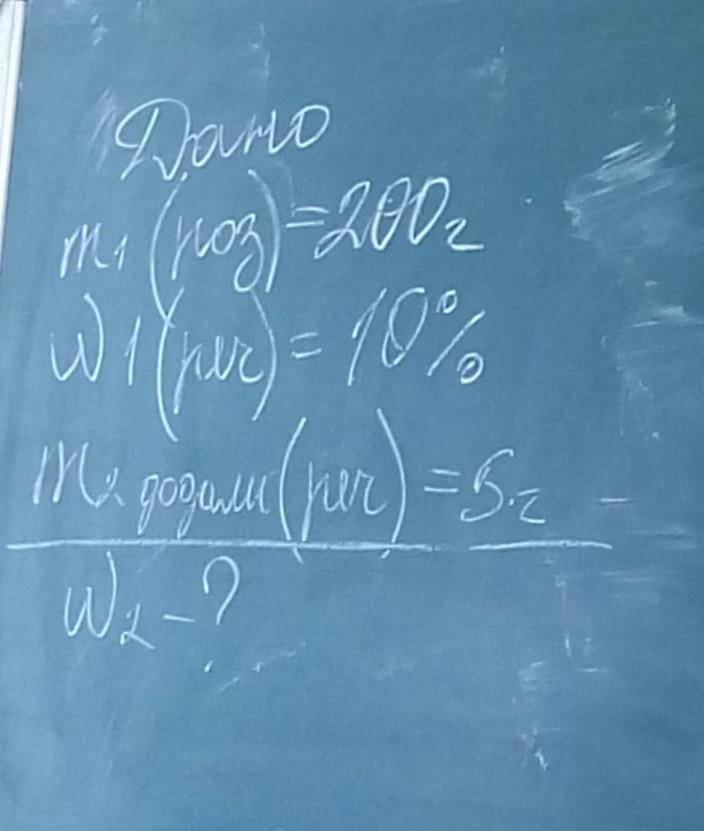 Дано
m1 (роз) = 200 г
W1 (реч) = 10%
m2 додали (реч) = 5 г
W2 - ?